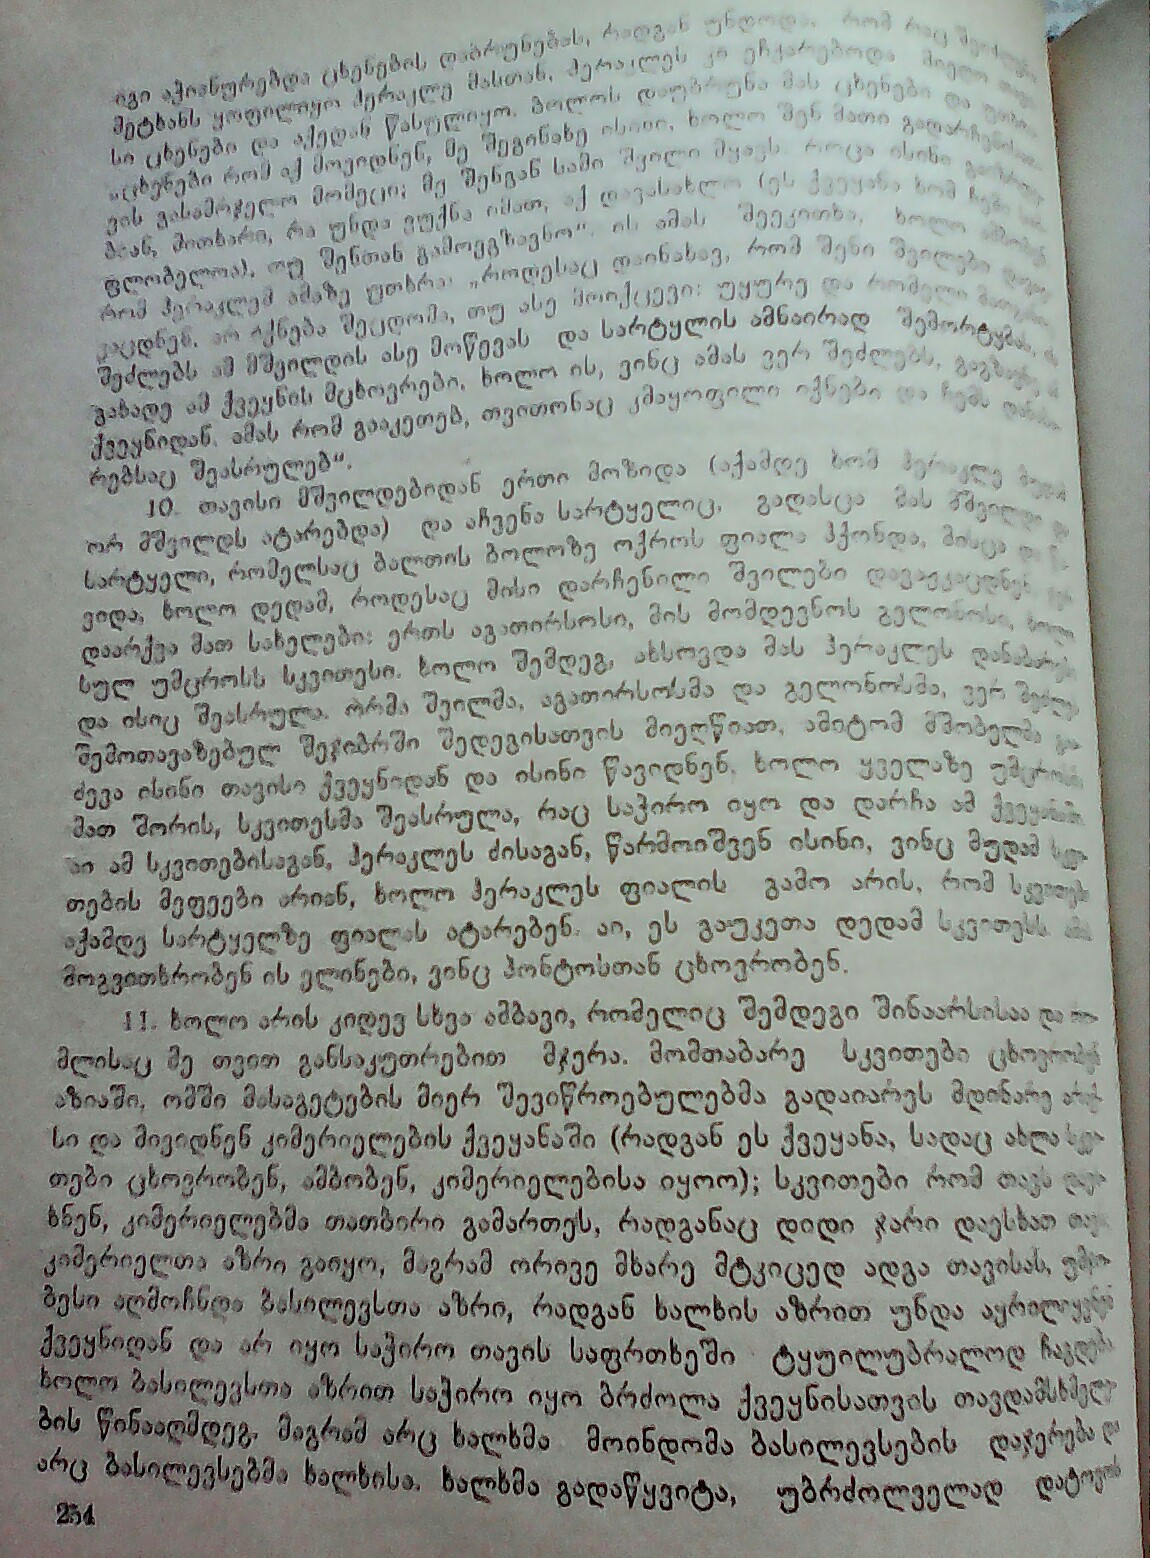 იგი აჭიანურებდა ცხენების დაბრუნებას, რადგან უნდოდა, რომ რაც შეიძლება
მეტხანს ყოფილიყო ჰერაკლე მასთან, ჰერაკლეს კი ეჩქარებოდა მიეღო
სი ცხენები და აქედან წასულიყო. ბოლოს დაუბრუნა მას ცხენები და უთხრა
„ცხენები რომ აქ მოვიდნენ, მე შეგინახე ისინი, ხოლო შენ მათი გადარჩენისათ-
ვის გასამრჯელო მომეცი; მე შენგან სამი შვილი მყავს. როცა ისინი
ბიან, მითხარი, რა უნდა ვუქნა იმათ, აქ დავასახლო (ეს ქვეყანა ხომ ჩემი
ფლობელოა), თუ შენთან გამოვგზავნო“. ის ამას შეეკითხა, ხოლო ამბობენ,
რომ ჰერაკლემ ამაზე უთხრა: „როდესაც დაინახავ, რომ შენი შვილები
კაცდნენ, არ იქნება შეცდომა, თუ ასე მოიქცევი: უყურე და რომელი მათგანიც
შეძლებს ამ მშვილდის ასე მოწევას და სარტყლის ამნაირად შემორტყმას,
გახადე ამ ქვეყნის მცხოვრები, ხოლო ის, ვინც ამას ვერ შეძლებს, გაგზავნე ამ
ქვეყნიდან. ამას რომ გააკეთებ, თვითონაც კმაყოფილი იქნები და ჩემს დანაბა-
რებსაც შეასრულებ“.
10. თავისი მშვილდებიდან ერთი მოზიდა (აქამდე ხომ ჰერაკლე
ორ მშვილდს ატარებდა) და აჩვენა სარტყელიც, გადასცა მას მშვილდი და
სარტყელი, რომელსაც ბალთის ბოლოზე ოქროს ფიალა ჰქონდა, მისცა და წა-
ვიდა, ხოლო დედამ, როდესაც მისი დარჩენილი შვილები დავაჟკაცდნენ,
დაარქვა მათ სახელები: ერთს აგათირსოსი, მის მომდევნოს გელონოსი, ხოლო
სულ უმცროსს სკვითესი. ხოლო შემდეგ, ახსოვდა მას ჰერაკლეს დანაბარები
და ისიც შეასრულა. ორმა შვილმა, აგათირსოსმა და გელონოსმა, ვერ შეძლეს
შემოთავაზებულ შეჯიბრში შედეგისათვის მიეღწიათ, ამიტომ მშობელმა გა-
ძევა ისინი თავისი ქვეყნიდან და ისინი წავიდნენ, ხოლო ყველაზე უმცროსმა
მათ შორის, სკვითესმა შეასრულა, რაც საჭირო იყო და დარჩა ამ ქვეყანაში.
აი ამ სკვითებისაგან, ჰერაკლეს ძისაგან, წარმოიშვნენ ისინი, ვინც მუდამ სკვი-
თების მეფეები არიან, ხოლო ჰერაკლეს ფიალის გამო არის, რომ სკვითები
აქამდე სარტყელზე ფიალას ატარებენ. აი, ეს გაუკეთა დედამ სკვითესს.
მოგვითხრობენ ის ელინები, ვინც პონტოსთან ცხოვრობენ.
11. ხოლო არის კიდევ სხვა ამბავი, რომელიც შემდეგი შინაარსისაა და რო-
მლისაც მე თვით განსაკუთრებით მჯერა. მომთაბარე სკვითები ცხოვრობდნენ
აზიაში, ომში მასაგეტების მიერ შევიწროებულებმა გადაიარეს მდინარე არაქ-
სი და მივიდნენ კიმერიელების ქვეყანაში (რადგან ეს ქვეყანა, სადაც ახლა სკვი-
თები ცხოვრობენ, ამბობენ, კიმერიელებისა იყოო); სკვითები რომ თავს დაე-
ხნენ, კიმერიელებმა თათბირი გამართეს, რადგანაც დიდი ჯარი დაესხათ თავს.
კიმერიელთა აზრი გაიყო, მაგრამ ორივე მხარე მტკიცედ ადგა თავისას, უმჯო-
ბესი აღმოჩნდა ბასილევსთა აზრი, რადგან ხალხის აზრით უნდა აყრილიყვნენ
ქვეყნიდან და არ იყო საჭირო თავის საფრთხეში ტყუილუბრალოდ ჩაგდება
ხოლო ბასილევსთა აზრით საჭირო იყო ბრძოლა ქვეყნისათვის თავდამსხმელე-
ბის წინააღმდეგ. მაგრამ არც ხალხმა მოინდომა ბასილევსების დაჯერება და
არც ბასილევსებმა ხალხისა. ხალხმა გადაწყვიტა, უბრძოლველად დატოვოს
254